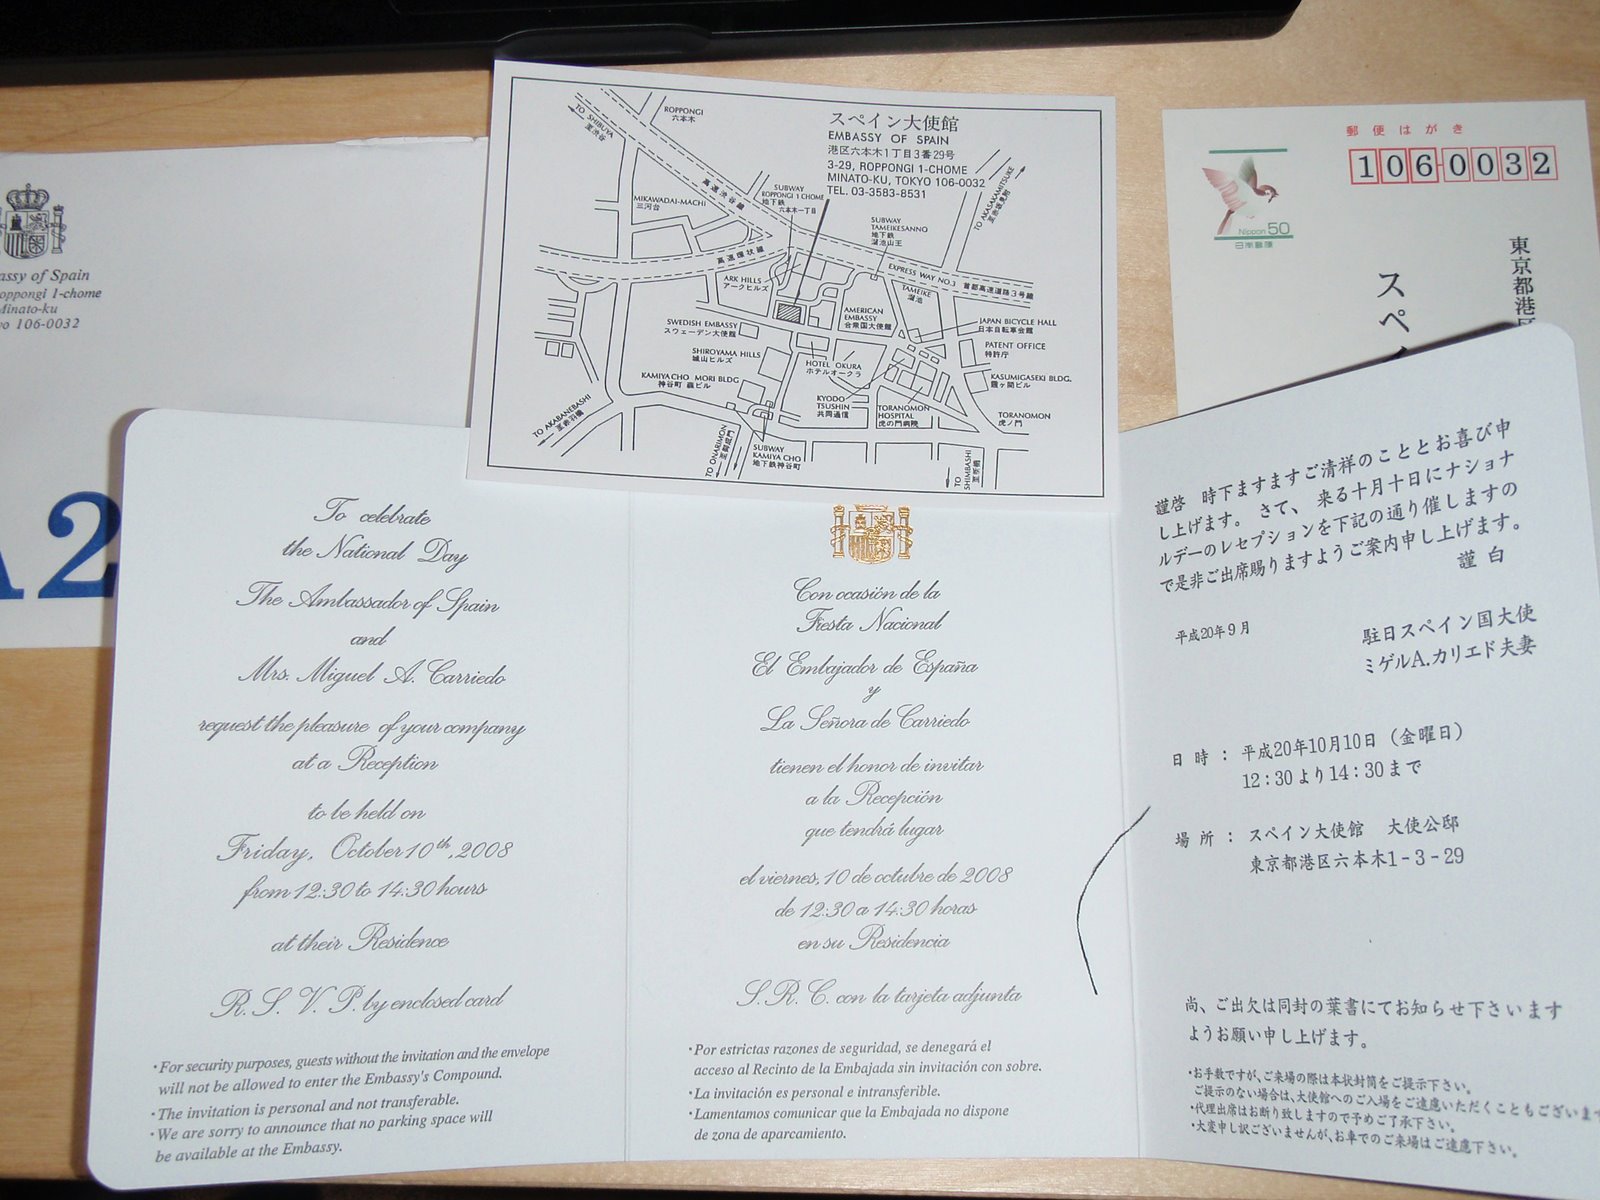 assy of Spain
oppongi 1-chome
Minato-ku
yo 106-0032
A2
スペイン大使館
EMBASSY OF SPAIN
港区六本木1丁目3番29号
3-29, ROPPONGI 1-CHOME
MINATO-KU, TOKYO 106-0032
TEL. 03-3583-8531
ROPPONGI
六本木
TO SHIBUYA
至渋谷
高速渋谷線
SUBWAY
ROPPONGI 1 CHOME
地下鉄
六本木一丁目
MIKAWADAI-MACHI
三河台
SUBWAY
TAMEIKESANNO
地下鉄
溜池山王
TO AKASAKAMITSUKE
至赤坂見附
高速環状線
EXPRESS WAY NO.3 首都高速道路3号線
ARK HILLS
アークヒルズ
TAMEIKE
溜池
AMERICAN
EMBASSY
合衆国大使館
JAPAN BICYCLE HALL
日本自転車会館
SWEDISH EMBASSY
スウェーデン大使館
PATENT OFFICE
特許庁
SHIROYAMA HILLS
城山ヒルズ
HOTEL OKURA
ホテルオークラ
KAMIYACHO MORI BLDG
神谷町 森ビル
KASUMIGASEKI BLDG.
霞ヶ関ビル
KYODO
TSUSHIN
共同通信
TORANOMON
HOSPITAL
虎の門病院
TORANOMON
虎ノ門
TO AKABANEBASHI
至赤羽橋
TO ONARIMON
至御成門
SUBWAY
KAMIYA CHO
地下鉄神谷町
TO SHIMBASHI
至新橋
郵便はがき
106-0032
Nippon 50
日本郵便
東京都港区
スペイ
To celebrate
the National Day
The Ambassador of Spain
and
Mrs. Miguel A. Carriedo
request the pleasure of your company
at a Reception
to be held on
Friday, October 10th, 2008
from 12:30 to 14:30 hours
at their Residence
R. S. V. P. by enclosed card
・For security purposes, guests without the invitation and the envelope
will not be allowed to enter the Embassy's Compound.
・The invitation is personal and not transferable.
・We are sorry to announce that no parking space will
be available at the Embassy.
Con ocasión de la
Fiesta Nacional
El Embajador de España
y
La Señora de Carriedo
tienen el honor de invitar
a la Recepción
que tendrá lugar
el viernes, 10 de octubre de 2008
de 12:30 a 14:30 horas
en su Residencia
S. R. C. con la tarjeta adjunta
・Por estrictas razones de seguridad, se denegará el
acceso al Recinto de la Embajada sin invitación con sobre.
・La invitación es personal e intransferible.
・Lamentamos comunicar que la Embajada no dispone
de zona de aparcamiento.
謹啓 時下ますますご清祥のこととお喜び申
し上げます。さて、来る十月十日にナショナ
ルデーのレセプションを下記の通り催しますの
で是非ご出席賜りますようご案内申し上げます。
謹白
平成20年9月
駐日スペイン国大使
ミゲルA.カリエド夫妻
日時：平成20年10月10日（金曜日）
12：30より14：30まで
場所：スペイン大使館 大使公邸
東京都港区六本木1-3-29
尚、ご出欠は同封の葉書にてお知らせ下さいます
ようお願い申し上げます。
・お手数ですが、ご来場の際は本状封筒をご提示下さい。
ご提示のない場合は、大使館へのご入場をご遠慮いただくこともございます
・代理出席はお断り致しますので予めご了承下さい。
・大変申し訳ございませんが、お車でのご来場はご遠慮下さい。